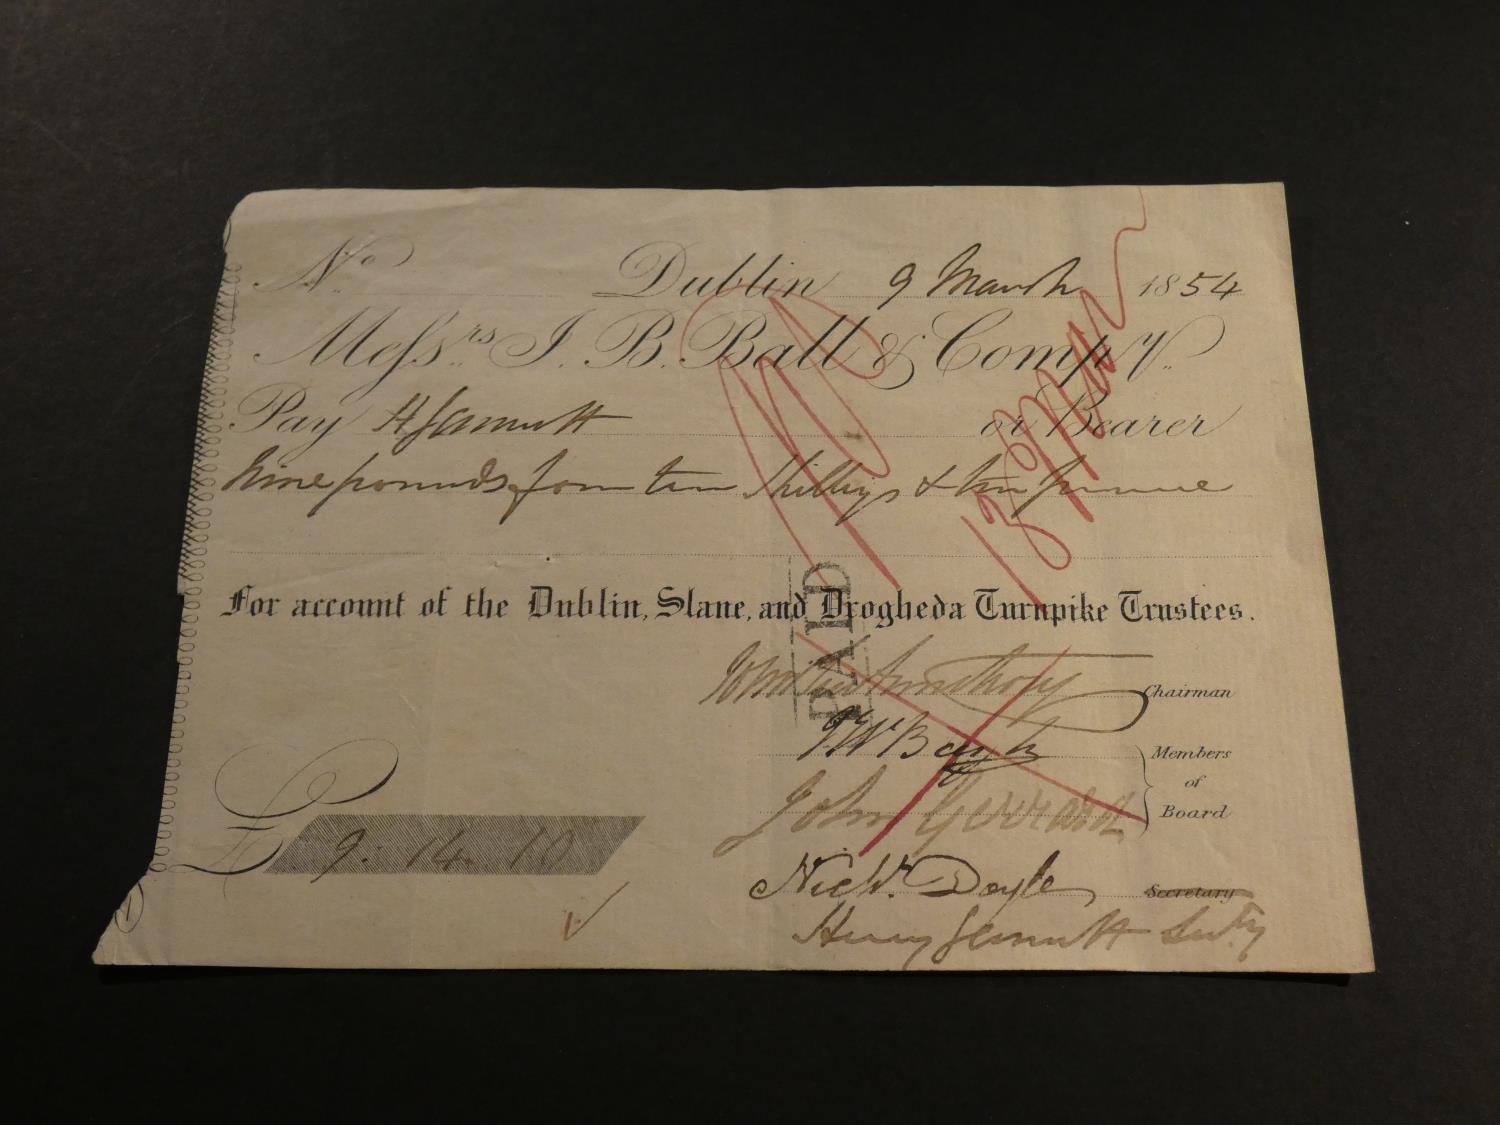 No. Dublin 9 March 1854
Messrs. J. B. Ball & Compy.
Pay H or Bearer
Nine pounds fourteen Shillings & ten pence
For account of the Dublin, Slane, and Drogheda Turnpike Trustees.
PAID
13 Mar
Armstrong Chairman
Members
of
Board
John Gerrard
£ 9 . 14 . 10
Nichs. Doyle Secretary
Henry Secty